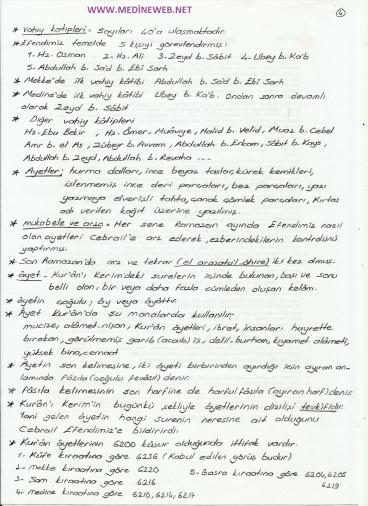 WWW.MEDINEWEB.NET
4
* Vahiy kâtipleri = Sayıları 40'a ulaşmaktadır.
* Efendimiz temelde 5 kişiyi görevlendirmiş:
1- Hz. Osman 2- Hz. Ali 3- Zeyd b. Sâbit 4- Ubey b. Ka'b
5- Abdullah b. Sa'd b. Ebi Sarh
* Mekke'de ilk vahiy kâtibi Abdullah b. Sa'd b. Ebi Sarh
* Medine'de ilk vahiy kâtibi Ubey b. Ka'b. Ondan sonra devamlı
olarak Zeyd b. Sâbit
* Diğer vahiy kâtipleri
Hz. Ebu Bekir, Hz. Ömer, Muâviye, Halid b. Velid, Muaz b. Cebel
Amr b. el As, Zübeyr b. Avvam, Abdullah b. Erkam, Sâbit b. Kays,
Abdullah b. Zeyd, Abdullah b. Revaha ...
* Âyetler; hurma dalları, ince beyaz taşlar, kürek kemikleri,
işlenmemiş ince deri parçaları, bez parçaları, yazı
yazmaya elverişli tahta, çanak çömlek parçaları, Kırtas
adı verilen kağıt üzerine yazılmış.
* mukabele ve arza = Her sene Ramazan ayında Efendimiz nazil
olan ayetleri Cebrail'e arz ederek, ezberindekilerin kontrolünü
yaptırmış.
* Son Ramazan'da arz ve tekrar (el arazatül âhire) iki kez olmuş.
* âyet - Kur'ân'ı Kerim'deki surelerin içinde bulunan, başı ve sonu
belli olan, bir veya daha fazla cümleden oluşan kelâm.
* âyetin çoğulu; ây veya âyâttır.
* Âyet Kur'ân'da şu manalarda kullanılır:
mucize, alâmet-nişan, Kur'ân âyetleri, ibret, insanları hayrette
bırakan, görülmemiş garib (acaib) iş, delil-burhan, kıyamet alâmeti,
yüksek bina, cemaat
* Âyetin son kelimesine, iki âyeti birbirinden ayırdığı için ayıran an-
lamında fâsıla (çoğulu fevâsıl) denir.
* Fâsıla kelimesinin son harfine de harful fâsıla (ayıran harf) denir.
* Kurân'ı Kerim'in bugünkü şekliyle âyetlerinin dizilişi tevkifidir.
Yani gelen âyetin hangi surenin neresine ait olduğunu
Cebrail Efendimiz'e bildirirdi.
* Kur'ân âyetlerinin 6200 küsur olduğunda ittifak vardır.
1- Kûfe kıraatına göre 6236 (Kabul edilen görüş budur)
2- mekke kıraatına göre 6220 5- Basra kıraatına göre 6204, 6205
3- Şam kıraatına göre 6216 6219
4- medine kıraatına göre 6210, 6214, 6217